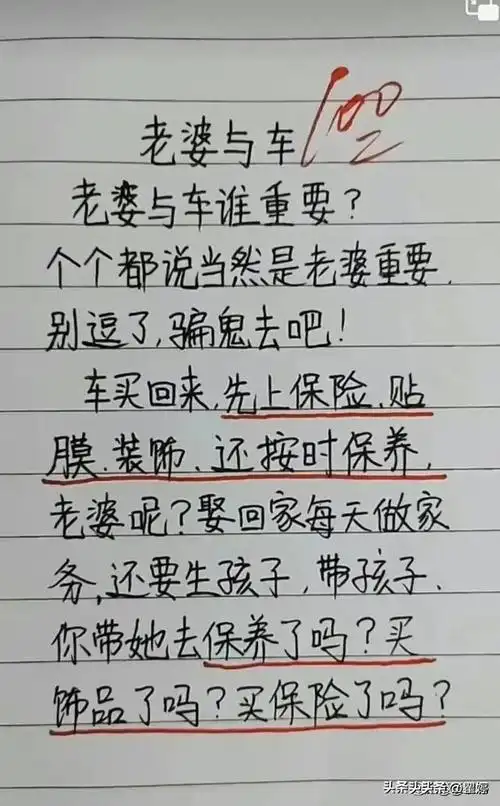 老婆与车 100
老婆与车谁重要？
个个都说当然是老婆重要.
别逗了,骗鬼去吧！
车买回来,先上保险、贴
膜、装饰、还按时保养,
老婆呢？娶回家每天做家
务,还要生孩子,带孩子.
你带她去保养了吗？买
饰品了吗？买保险了吗？